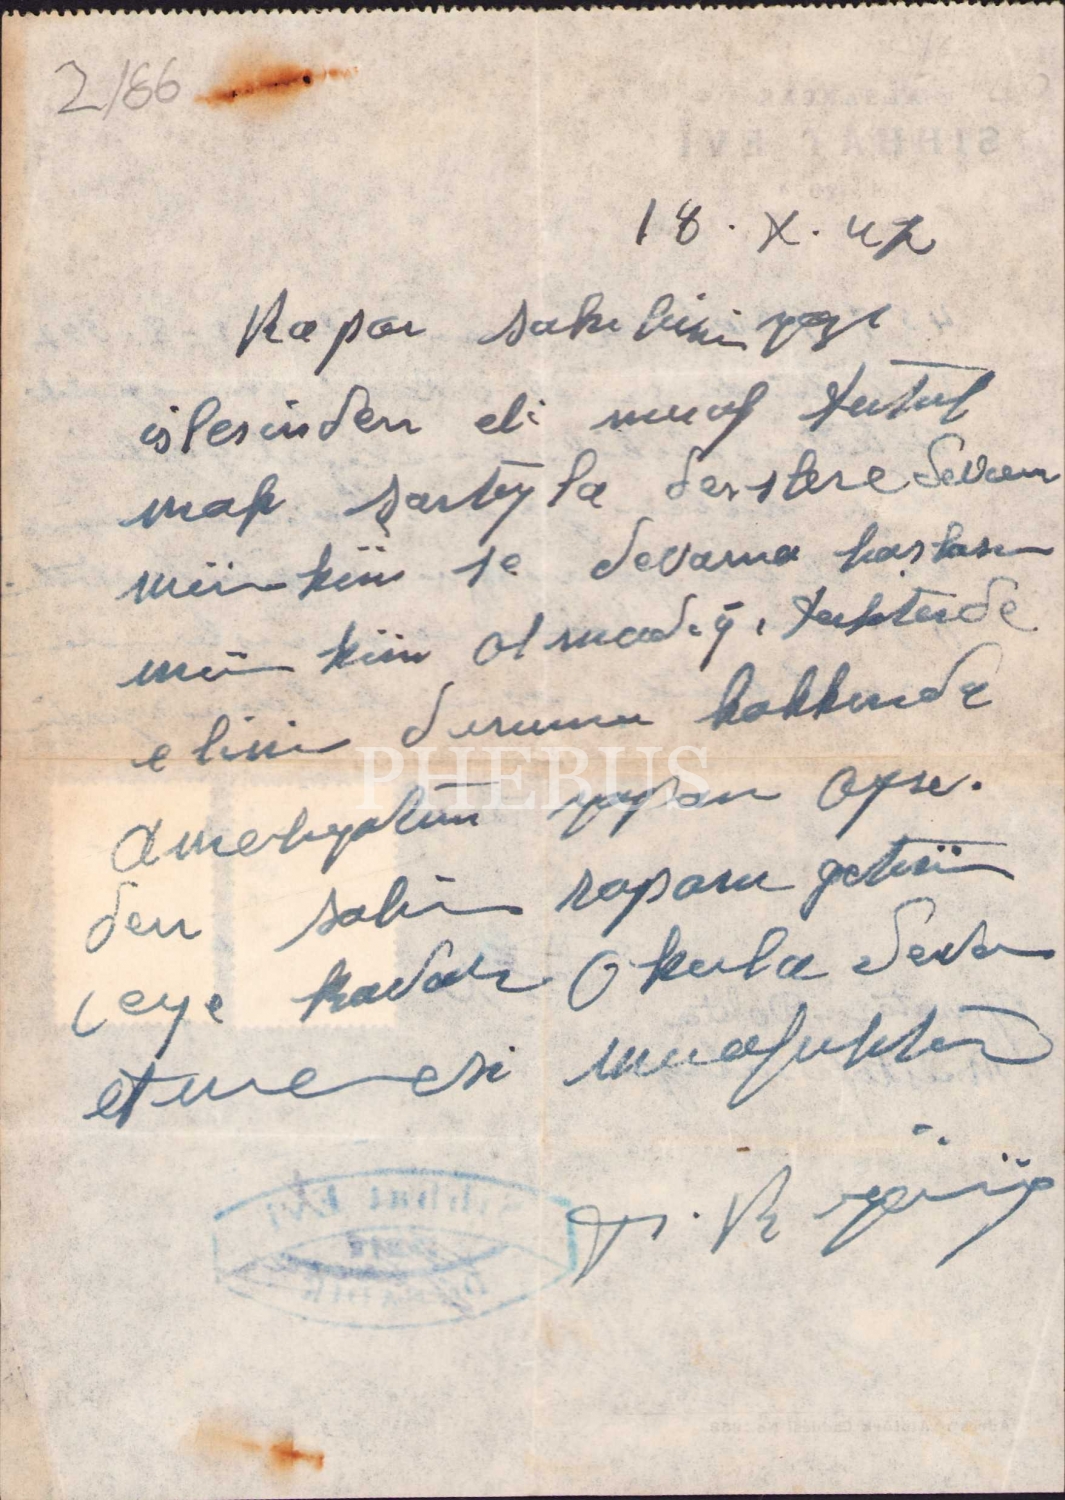 2/86
18. X. 42
Rapor sahibinin yazı
işlesinden eli muaf tutul
mak şartıyla derslere devam
mümkün se devama hastanın
mümkün olmadığı takdirde
elinin durumu hakkında
PHEBUS
Ameliyatını yapan opr.
den salim raporu getirin
ceye kadar Okula devam
etmemesi muafıktır
Sıhhat Evi